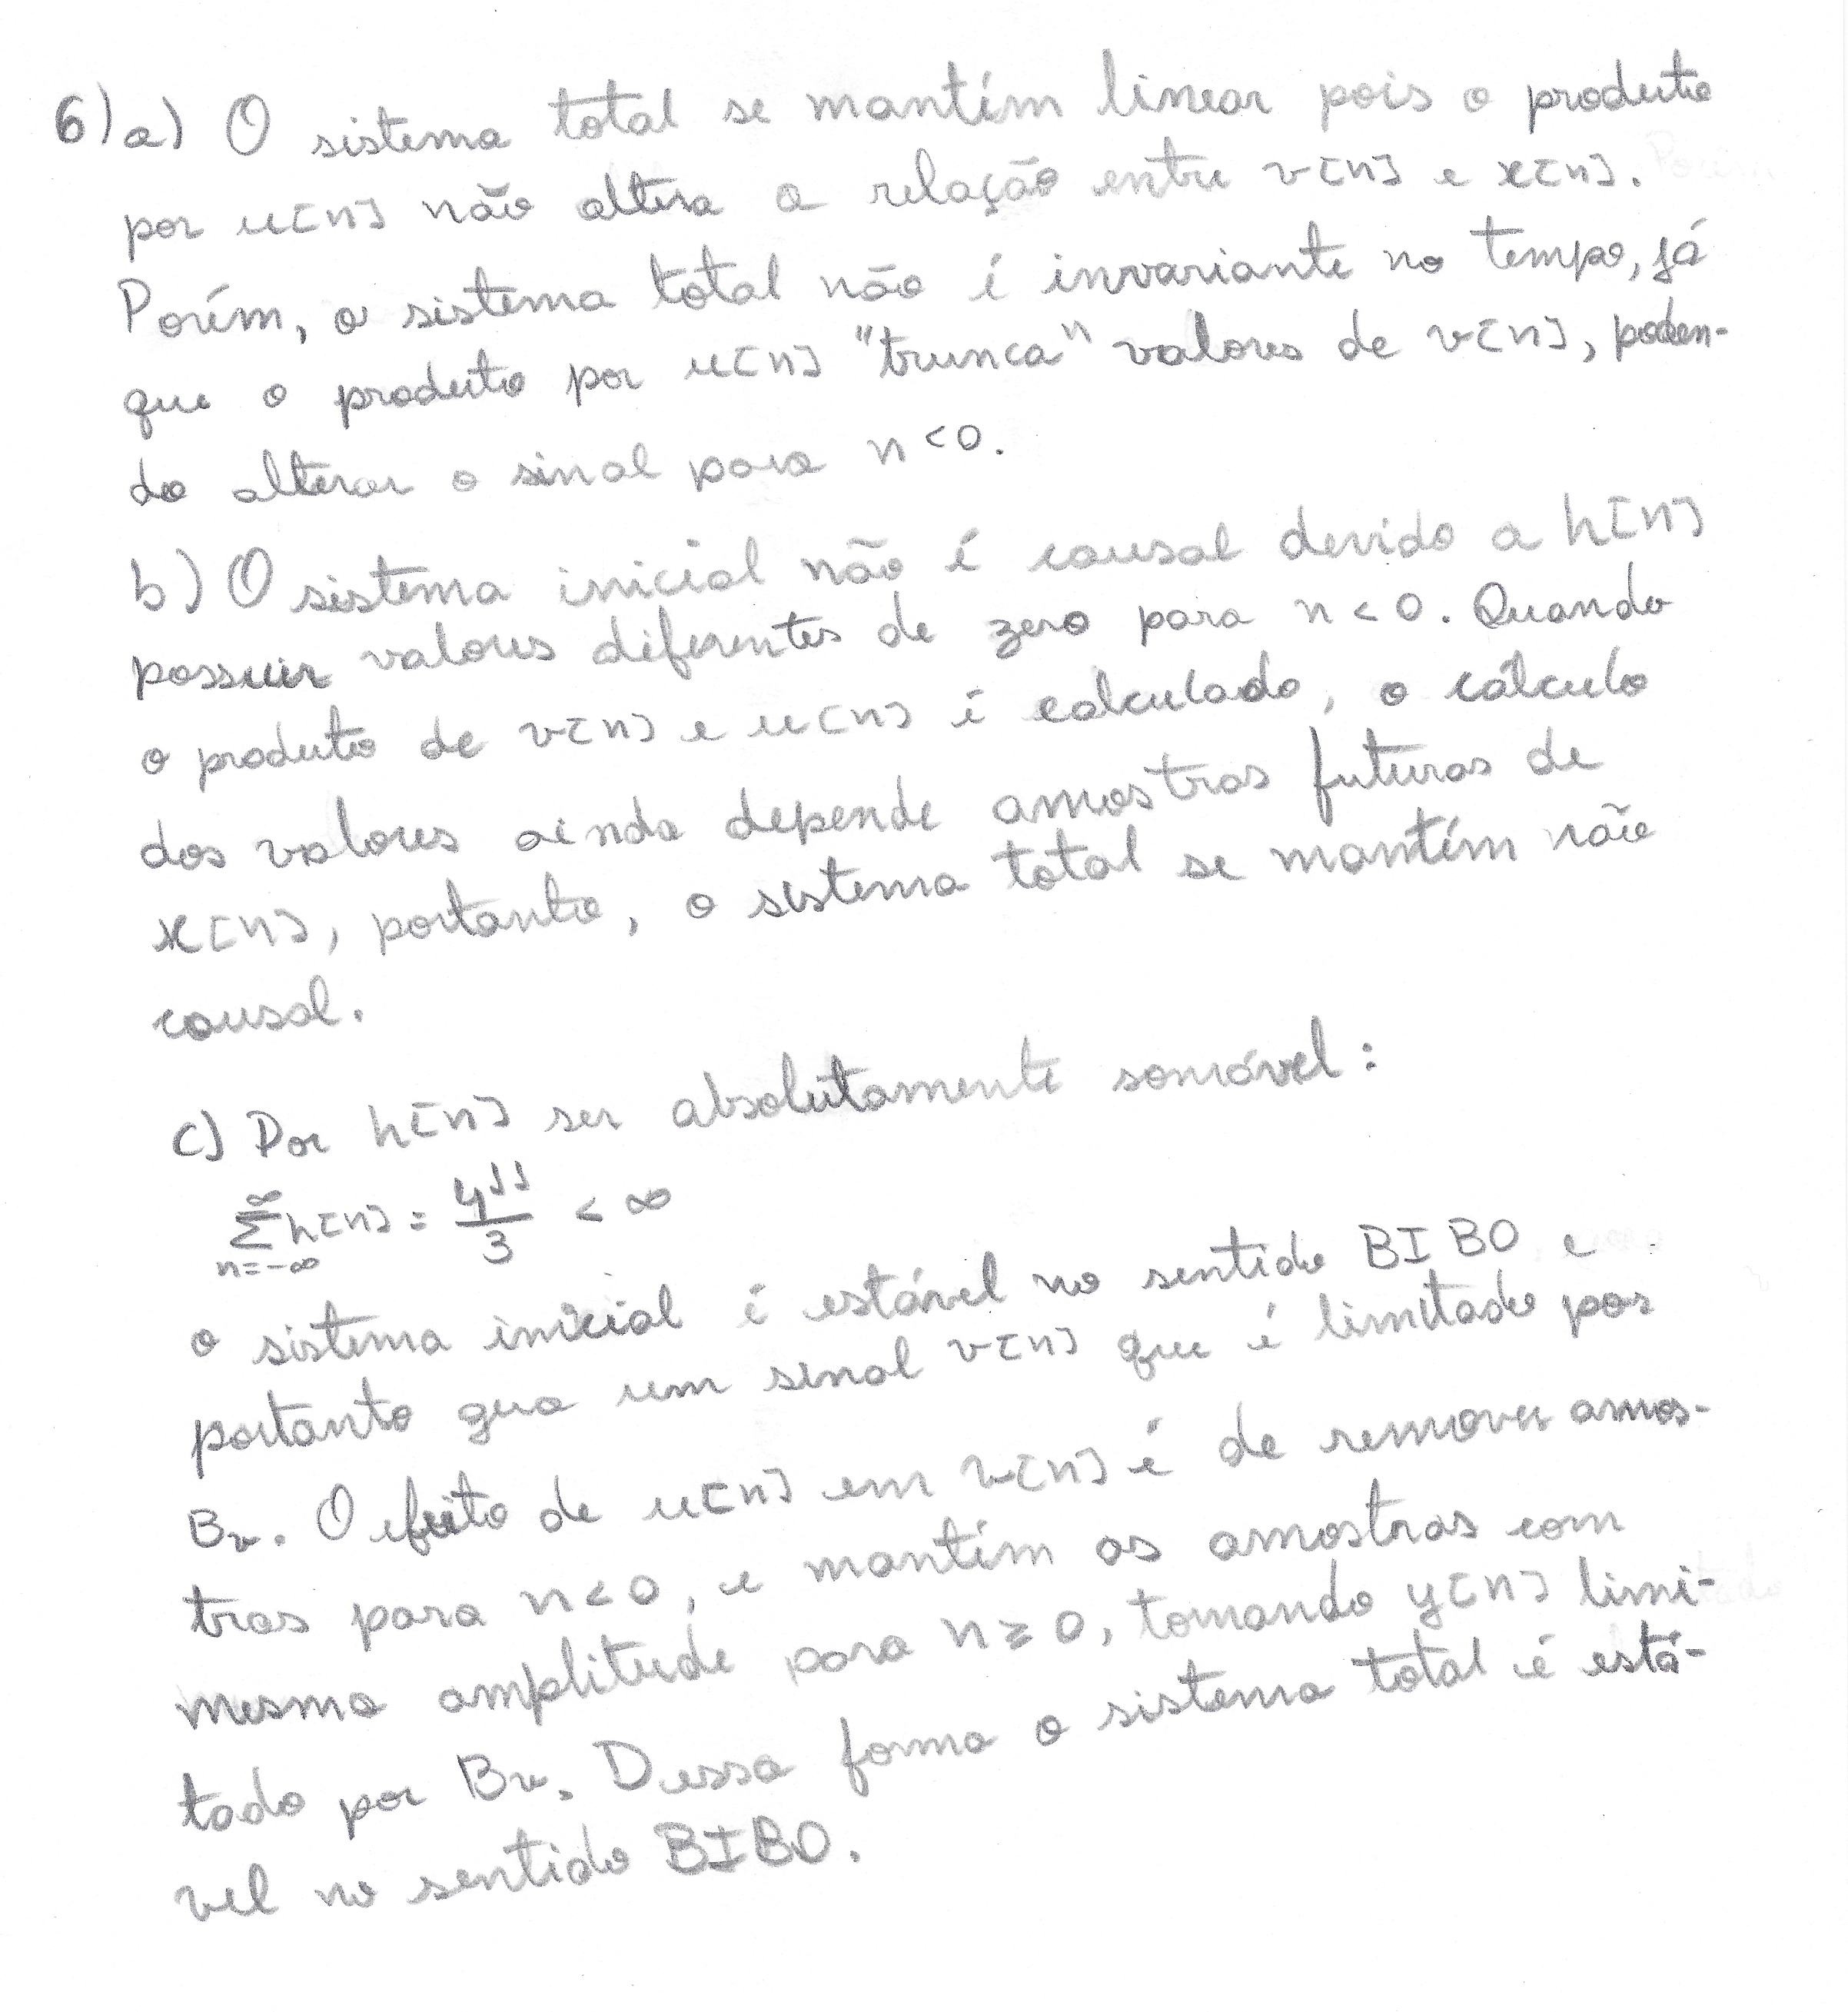 6) a) O sistema total se mantém linear pois o produto
por u[n] não altera a relação entre v[n] e x[n].
Porém, o sistema total não é invariante no tempo, já
que o produto por u[n] "trunca" valores de v[n], poden-
do alterar o sinal para n < 0.
b) O sistema inicial não é causal devido a h[n]
possuir valores diferentes de zero para n < 0. Quando
o produto de v[n] e u[n] é calculado, o cálculo
dos valores ainda depende amostras futuras de
x[n], portanto, o sistema total se mantém não
causal.
c) Por h[n] ser absolutamente somável:
∞ Σ n=-∞ h[n] = 4^11/3 < ∞
o sistema inicial é estável no sentido BIBO e
portanto gera um sinal v[n] que é limitado por
Bv. O efeito de u[n] em v[n] é de remover amos-
tras para n < 0, e mantém as amostras com
mesma amplitude para n ≥ 0, tornando y[n] limi-
tado por Bv. Dessa forma o sistema total é está-
vel no sentido BIBO.